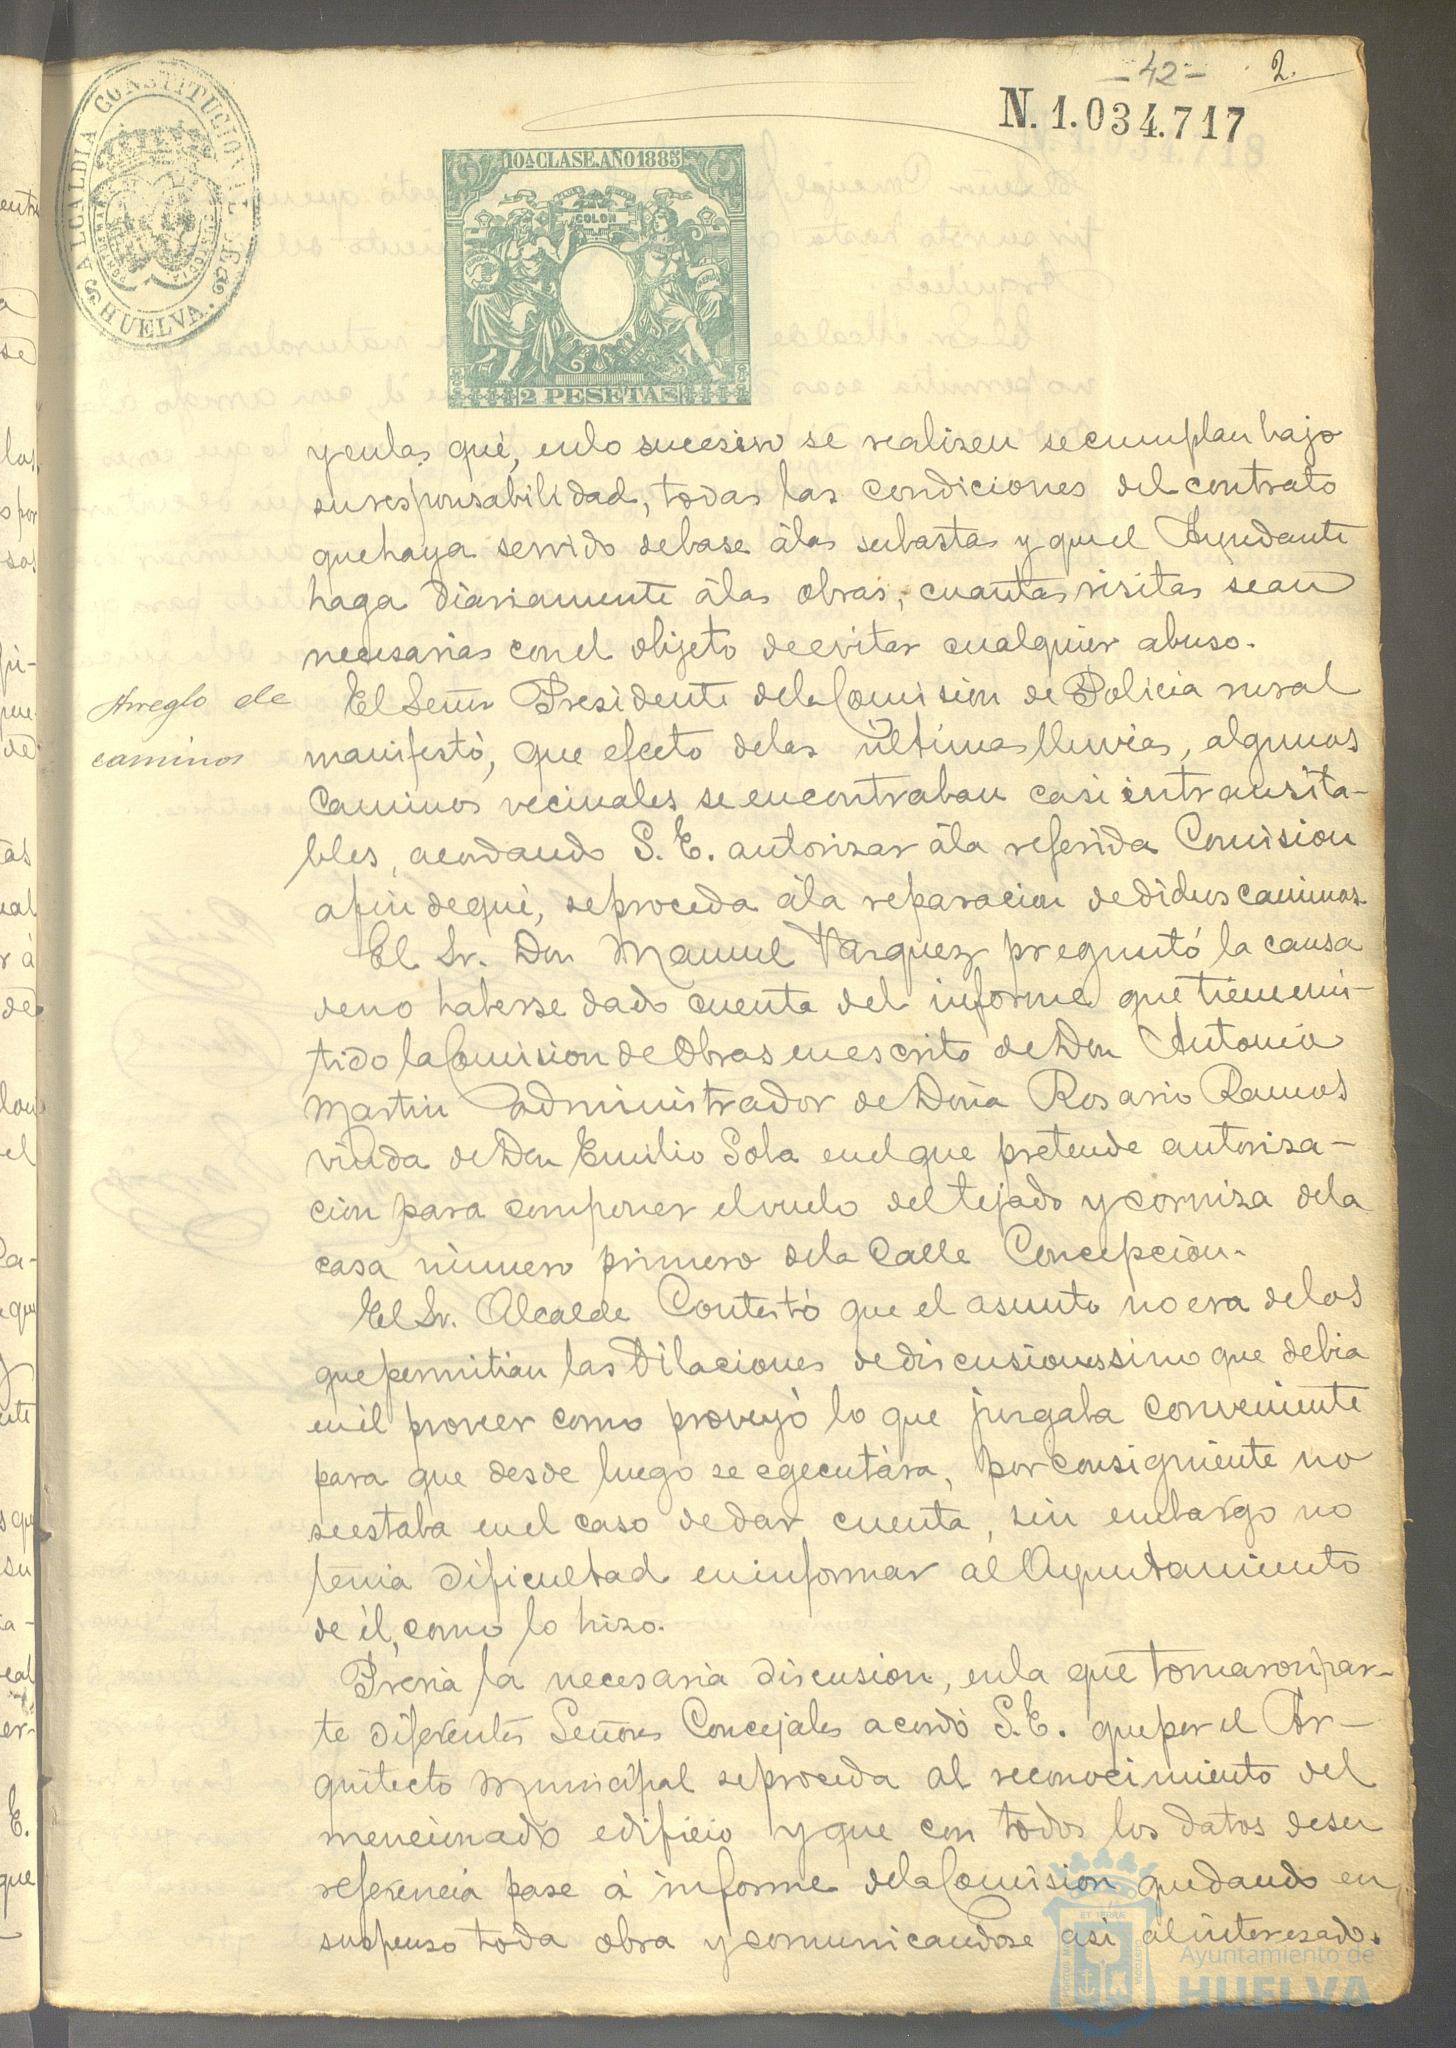 -42-
2.
N. 1.034.717
ALCALDIA CONSTITUCIONAL DE HUELVA.
10ª CLASE. AÑO 1885
COLON
2 PESETAS
y en las que, en lo sucesivo se realisen se cumplan bajo
su responsabilidad, todas las condiciones del contrato
que haya servido de base á las subastas y que el Ayudante
haga diariamente á las obras, cuantas visitas sean
necesarias con el objeto de evitar cualquier abuso.
Arreglo de
caminos
El Señor Presidente de la Comision de Policia rural
manifestó, que efecto de las últimas lluvias, algunos
Caminos vecinales se encontraban casi intransita-
bles, acordando S. E. autorizar á la referida Comision
a fin de que, se proceda á la reparacion de dichos caminos.
El Sr. Don Manuel Vazquez preguntó la causa
de no haberse dado cuenta del informe que tiene emi-
tido la Comision de Obras en escrito de Don Antonio
Martin administrador de Doña Rosario Ramos
viuda de Don Emilio Sola en el que pretende autoriza-
cion para componer el vuelo del tejado y corniza de la
casa número primero de la Calle Concepcion.
El Sr. Alcalde Contestó que el asunto no era de los
que permitian las dilaciones de discusiones sino que debia
en él proveer como proveyó lo que juzgaba conveniente
para que desde luego se egecutára, por consiguiente no
se estaba en el caso de dar cuenta, sin embargo no
tenia dificultad en informar al Ayuntamiento
de él, como lo hizo.
Previa la necesaria discusion, en la que tomaron par-
te diferentes Señores Concejales acordó S. E. que por el Ar-
quitecto Municipal se proceda al reconocimiento del
mencionado edificio y que con todos los datos de su
referencia pase á informe de la Comision quedando en
suspenso toda obra y comunicandose asi al interesado.
Ayuntamiento de
HUELVA